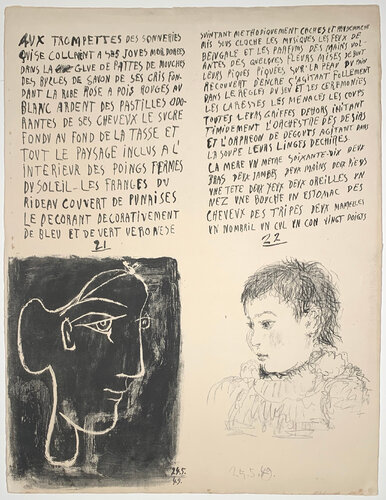 AUX TROMPETTES DES SONNERIES
QUI SE COLLENT A SES JOUES MORDORÉES
DANS LA GLUE DE PATTES DE MOUCHES
DES BULLES DE SAVON DE SES CRIS FON-
DANT LA ROBE ROSE A POIS ROUGES AU
BLANC ARDENT DES PASTILLES ODO-
RANTES DE SES CHEVEUX LE SUCRE
FONDU AU FOND DE LA TASSE ET
TOUT LE PAYSAGE INCLUS A L'
INTERIEUR DES POINGS FERMÉS
DU SOLEIL - LES FRANGES DU
RIDEAU COUVERT DE PUNAISES
LE DECORANT DECORATIVEMENT
DE BLEU ET DE VERT VERONESE
21
SUINTANT METHODIQUEMENT CACHES ET
MIS SOUS CLOCHE LES MUSIQUES LES FEUX DE
BENGALE ET LES PARFUMS DES MAINS VOL-
ANTES DES QUELQUES FLEURS MISES DEBOUT
LEURS PIQUES PIQUÉES SUR LA PEAU DU PAIN
RECOUVERT D'ENCRE S'AGITANT FOLLEMENT
DANS LES REGLES DU JEU ET LES CEREMONIES
LES CARESSES LES MENACES LES COUPS
TOUTES LEURS GRIFFES DEHORS INITIANT
TIMIDEMENT L'ORCHESTRE DES DESIRS
ET L'ORPHEON DE DEGOUTS AGITANT DANS
LA SOUPE LEURS LINGES DECHIRÉS
LA MERE UN METRE SOIXANTE-DIX DEUX
BRAS DEUX JAMBES DEUX MAINS DEUX PIEDS
UNE TETE DEUX YEUX DEUX OREILLES UN
NEZ UNE BOUCHE UN ESTOMAC DES
CHEVEUX DES TRIPES DEUX MAMELLES
UN NOMBRIL UN CUL UN CON VINGT DOIGTS
22
24.5.
49.
24.5.49.